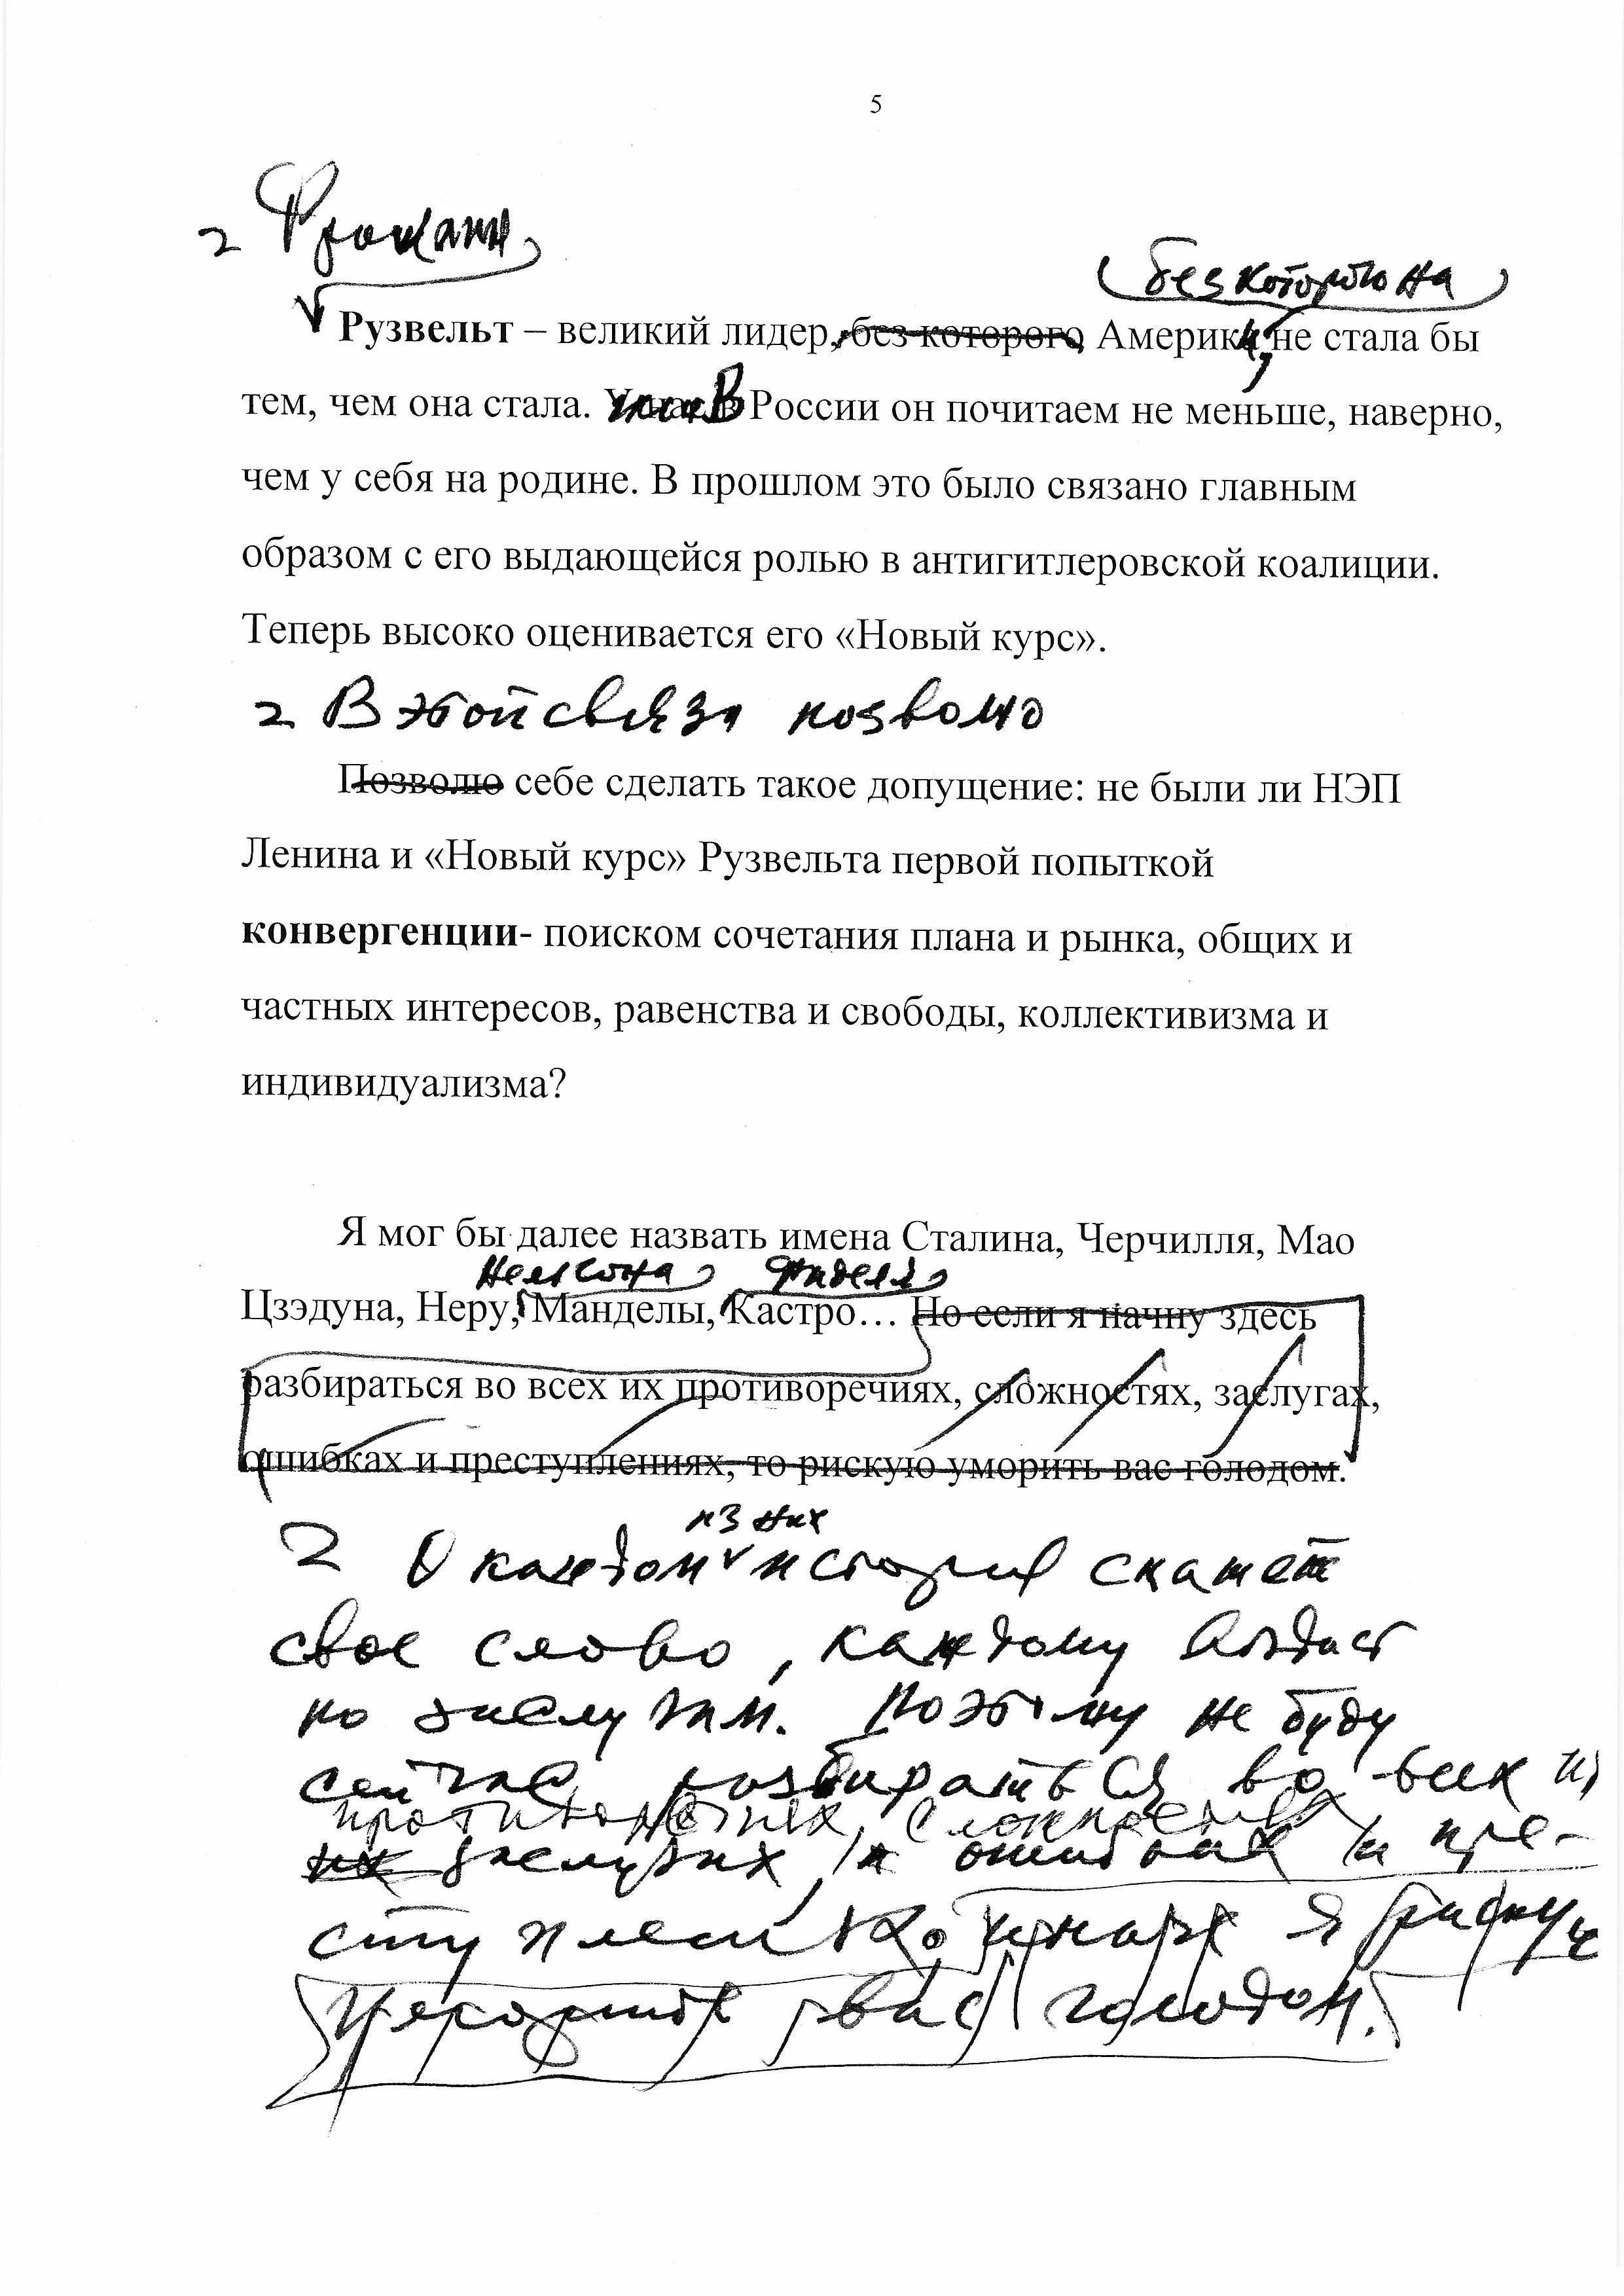 5
Франклин
без которого она
Рузвельт – великий лидер, без которого Америки, не стала бы
тем, чем она стала. У нас в В России он почитаем не меньше, наверно,
чем у себя на родине. В прошлом это было связано главным
образом с его выдающейся ролью в антигитлеровской коалиции.
Теперь высоко оценивается его «Новый курс».
В этой связи позволю
Позволю себе сделать такое допущение: не были ли НЭП
Ленина и «Новый курс» Рузвельта первой попыткой
конвергенции- поиском сочетания плана и рынка, общих и
частных интересов, равенства и свободы, коллективизма и
индивидуализма?
Я мог бы далее назвать имена Сталина, Черчилля, Мао
Нельсона Фиделя
Цзэдуна, Неру, Манделы, Кастро… Но если я начну здесь
разбираться во всех их противоречиях, сложностях, заслугах,
ошибках и преступлениях, то рискую уморить вас голодом.
из них
О каждом история скажет
свое слово, каждому воздаст
по заслугам. Поэтому не буду
сейчас разбираться во всех их
противоречиях, сложностях
их заслугах, и ошибках и пре-
ступлениях. Иначе я рискую
уморить вас голодом.